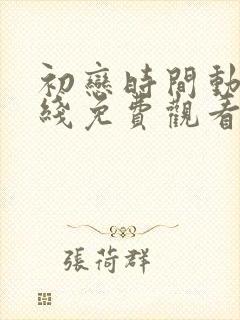 初戀時間動
綫免費觀看
張荷群